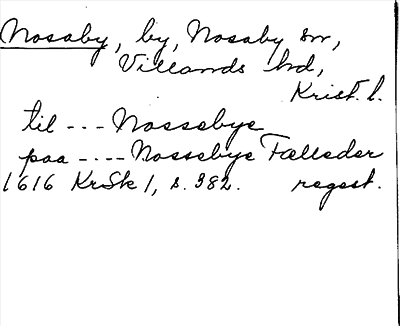 Nosaby, by, Nosaby sn,
Villands hd,
Krist. l.
til --- Nossebye
paa ---- Nossebye Fælleder
1616 KrSk 1, s. 382. regest.